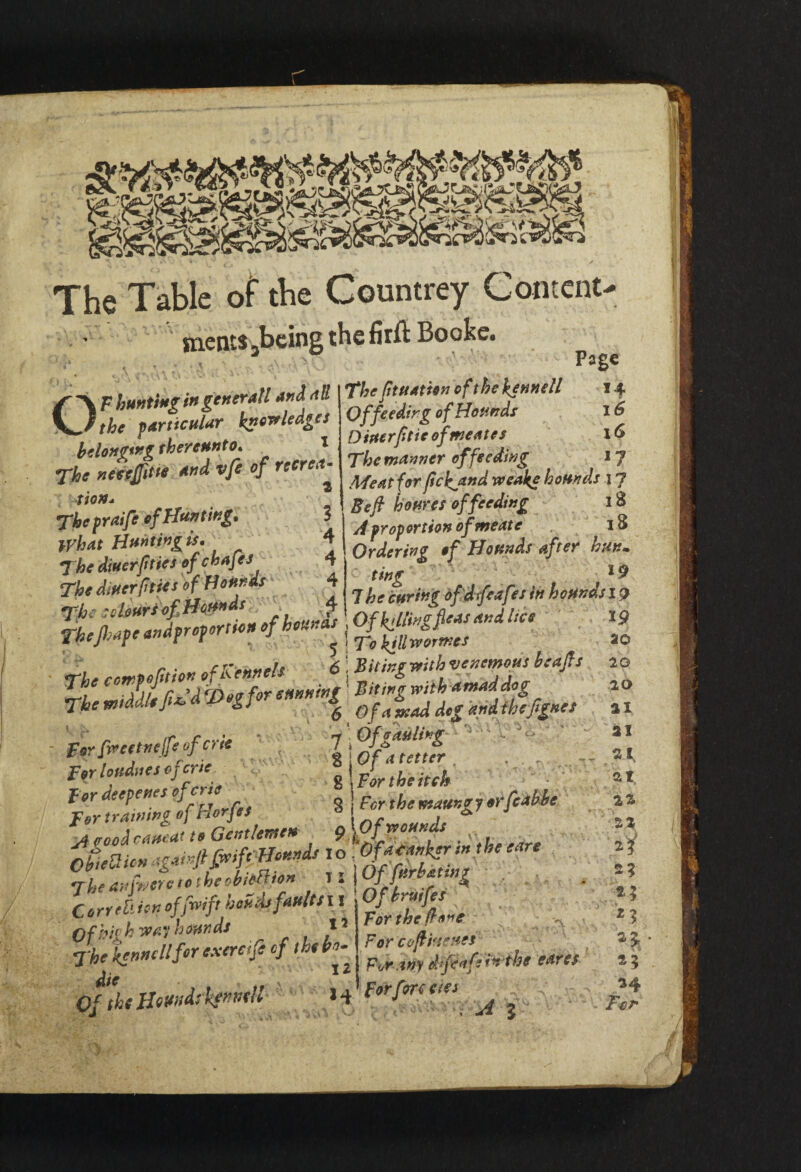 The Table of the Countrey Content-
ments, being the first Booke.
Page
OF hunting in generall and all
the particular knowledges
belonging thereunto. 1
The necessitie and vse of recrea-
tion. 2
The praise of Hunting. 3
What Hunting is. 4
The diuersities of chases 4
The diuersities of Hounds 4
The colours of Hounds 4
The shape and proportion of hounds
5
The composition of Kennels 6
The middle siz'd Dog for cunning
6
For sweetnesse of crie 7
For loudnes of crie 8
For deepenes of crie 8
For training of Horses 8
A good caueat to Gentlemen 9
Obiection against swift Hounds 10
The answere to the obiection 11
Correction of swift hoūds faults 11
Of high way hounds 12
The kennell for exercise of the bo-
die 12
Of the Hounds kennell 14
The situation of the kennell 14
Of feeding of Hounds 16
Diuersitie of meates 16
The manner of feeding 17
Meat for sick and weake hounds 17
Best houres of feeding 18
A proportion of meate 18
Ordering of Hounds after hun-
ting 19
The curing of diseases in hounds 19
Of killing fleas and lice 19
To kill wormes 20
Biting with venemous beasts 20
Biting with a mad dog 20
Of a mad dog and the signes 21
Of gauling 21
Of a tetter 21
For the itch 21
For the maungy or scabbe 22
Of wounds 22
Of a canker in the eare 23
Of surbating 23
Of bruises 23
For the stone 23
For costiuenes 23
For any disease in the eares 23
For sore eies 24
A 3
For